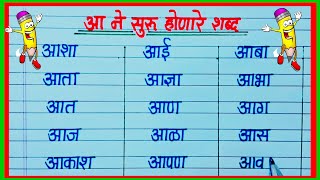 आ ने सुरू होणारे शब्द
आशा आई आबा
आता आज्ञा आभा
आत आण आग
आज आळा आस
आकाश आपण आव